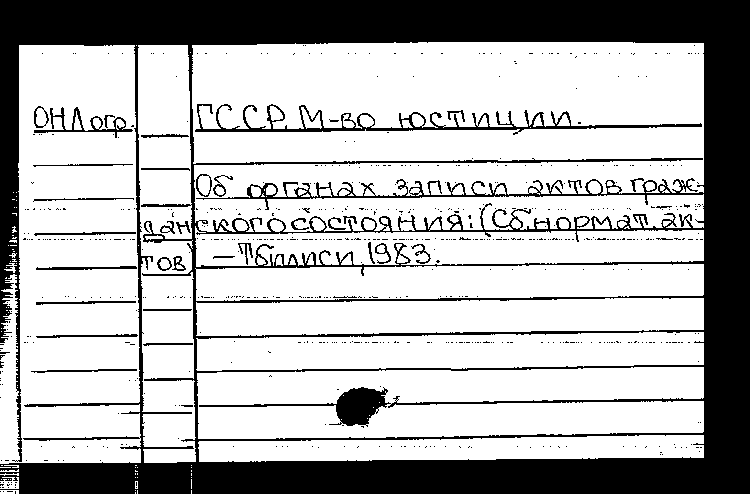 ОНЛогр. ГССР. М-во юстиции.
Об органах записи актов граж-
данского состояния: (Сб. нормат. ак-
тов) – Тбилиси, 1983.